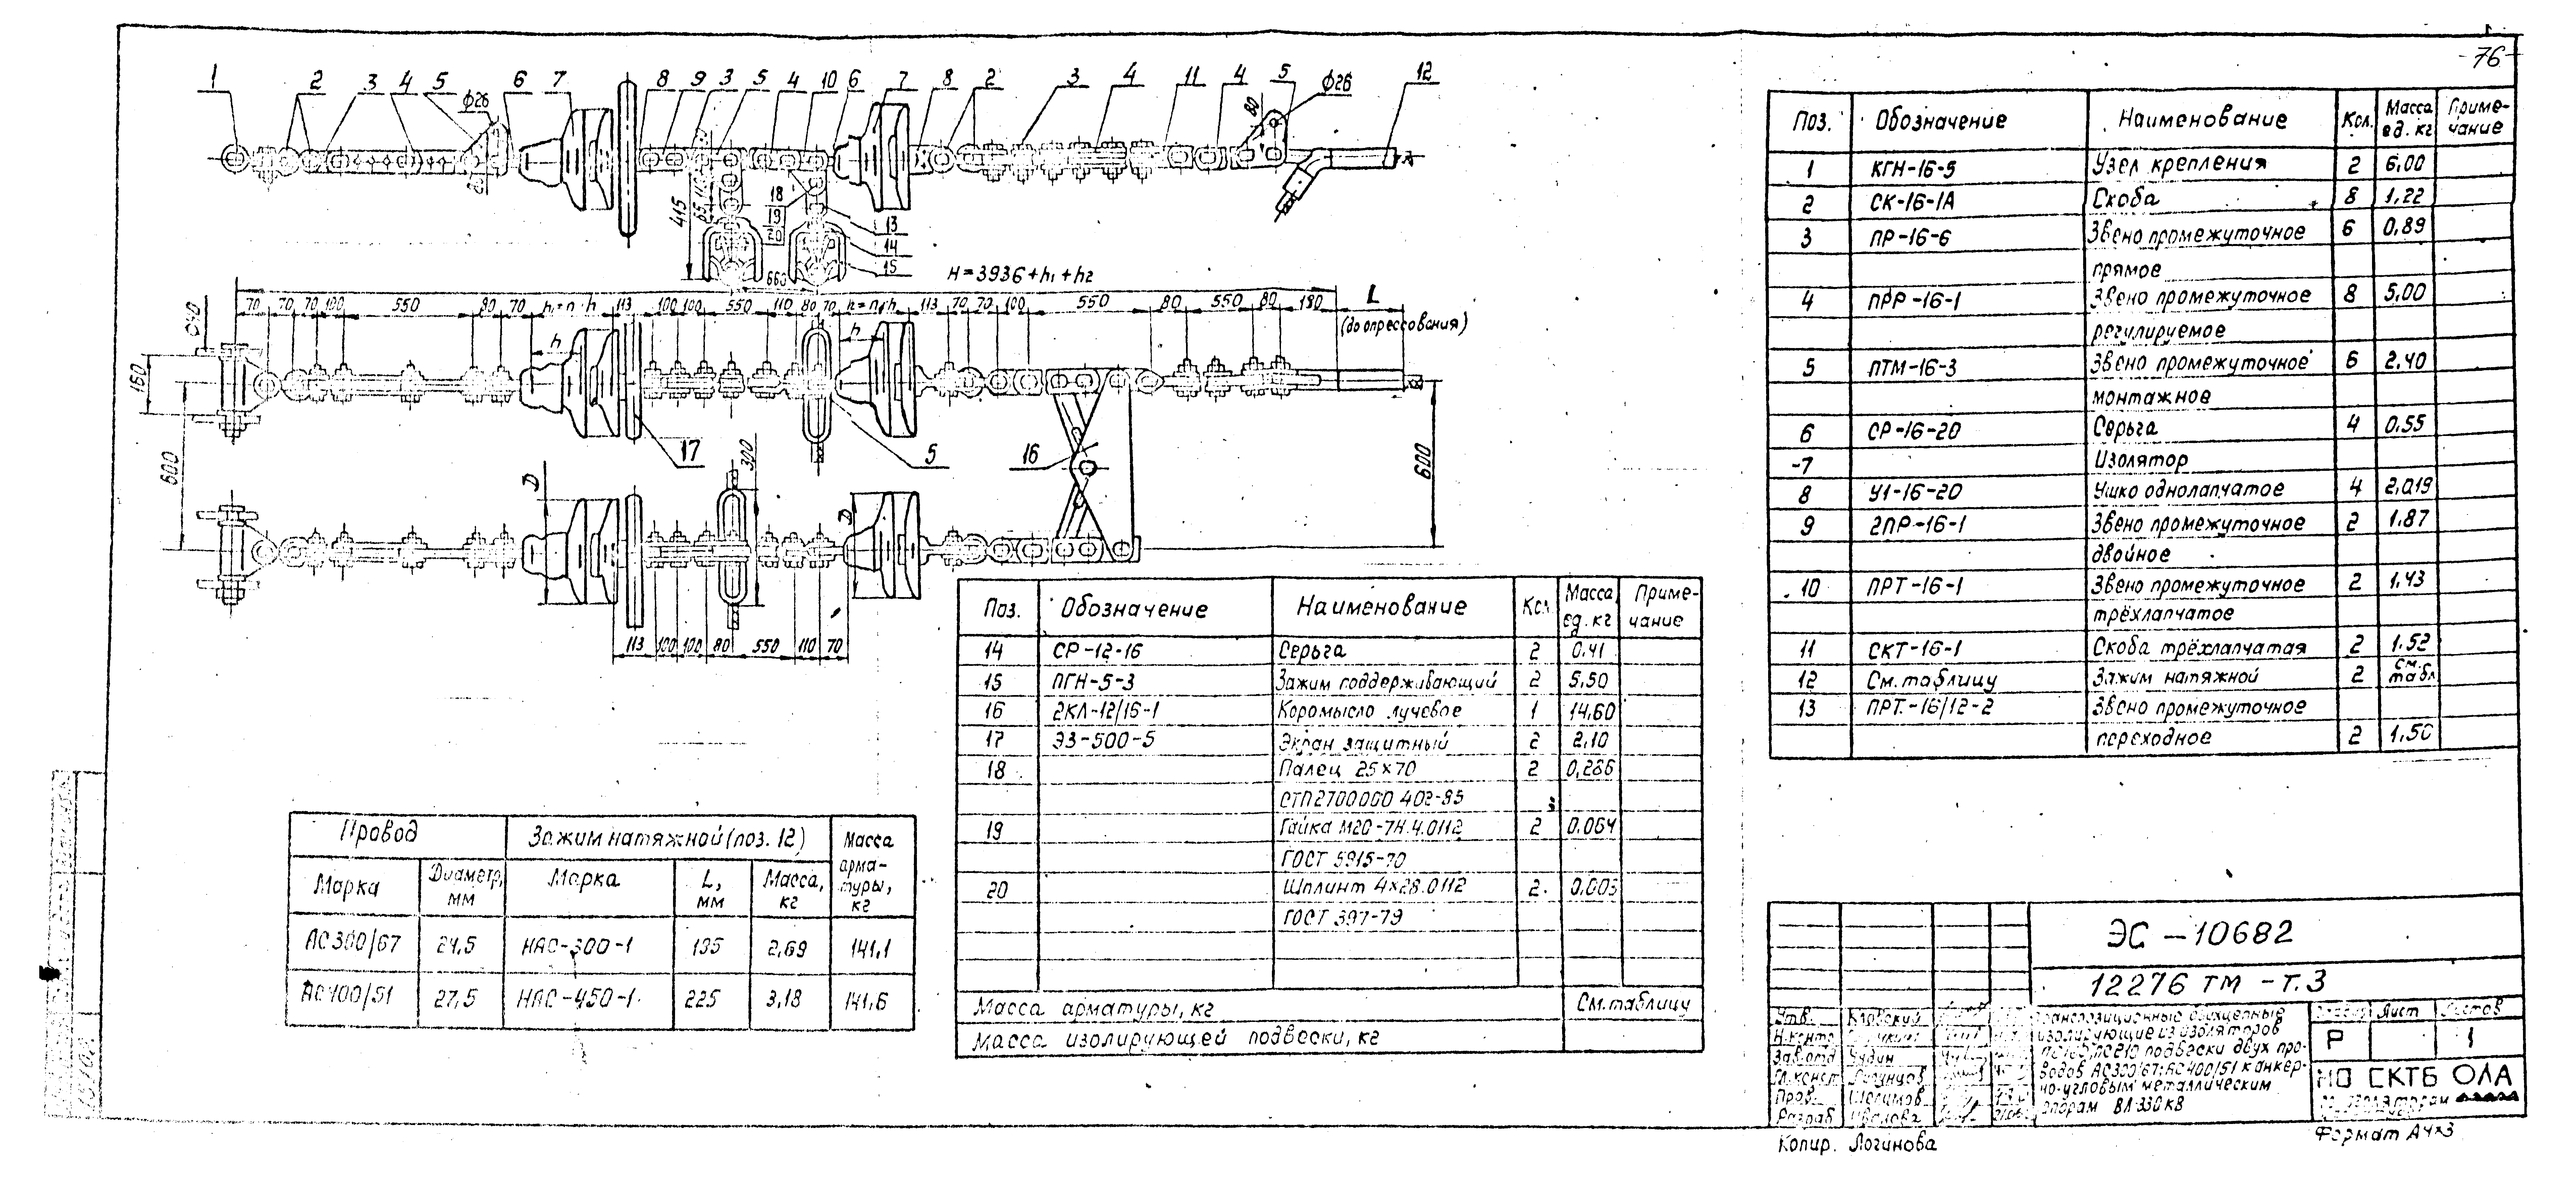 76
1 2 3 4 5 ф26 6 7 8 9 3 5 4 10 6 7 8 2 3 4 11 4 5 ф26 12
80
18
19
20
13
14
15
415
660
H=3936+h₁+h₂
70 70 70 100 550 80 70 h₁=n·h 113 100 100 550 110 80 70 113 70 70 100 550 80 550 80 180 L
(до опрессования)
160
600
h
h
17
5
16
600
300
D
D
113 100 100 80 550 110 70
Поз. Обозначение Наименование Кол. Масса ед. кг Примечание
1 КГН-16-5 Узел крепления 2 6,00
2 СК-16-1А Скоба 8 1,22
3 ПР-16-6 Звено промежуточное 6 0,89
прямое
4 ПРР-16-1 Звено промежуточное 8 5,00
регулируемое
5 ПТМ-16-3 Звено промежуточное 6 2,40
монтажное
6 СР-16-20 Серьга 4 0,55
7 Изолятор
8 У1-16-20 Ушко однолапчатое 4 2,019
9 2ПР-16-1 Звено промежуточное 2 1,87
двойное
10 ПРТ-16-1 Звено промежуточное 2 1,43
трёхлапчатое
11 СКТ-16-1 Скоба трёхлапчатая 2 1,52
12 См. таблицу Зажим натяжной 2 см. табл
13 ПРТ-16/12-2 Звено промежуточное
переходное 2 1,50
Поз. Обозначение Наименование Кол Масса ед. кг Примечание
14 СР-12-16 Серьга 2 0,41
15 ПГН-5-3 Зажим поддерживающий 2 5,50
16 2КЛ-12/16-1 Коромысло лучевое 1 14,60
17 ЭЗ-500-5 Экран защитный 2 2,10
18 Палец 25×70 2 0,286
СТП2700000 402-85
19 Гайка М20-7Н.4.0112 2 0,064
ГОСТ 5915-70
20 Шплинт 4×28.0112 2 0,003
ГОСТ 397-79
Масса арматуры, кг См. таблицу
Масса изолирующей подвески, кг
Провод Зажим натяжной (поз. 12) Масса арматуры, кг
Марка Диаметр, мм Марка L, мм Масса, кг
АС300/67 24,5 НАС-300-1 195 2,69 141,1
АС400/51 27,5 НАС-450-1 225 3,18 141,6
ЭС-10682
12276 тм-т.3
Утв.
Н.контр
Зав.отд Чудин
Гл.конст
Пров.
Разраб Иванова
Транспозиционные двухцепные
изолирующие из изоляторов
подвески двух про-
водов АС300/67; АС400/51 к анкер-
но-угловым металлическим
опорам ВЛ 330 кВ
Стадия Лист Листов
Р 1
МО СКТБ ОЛА
Копир. Логинова
Формат А4×3